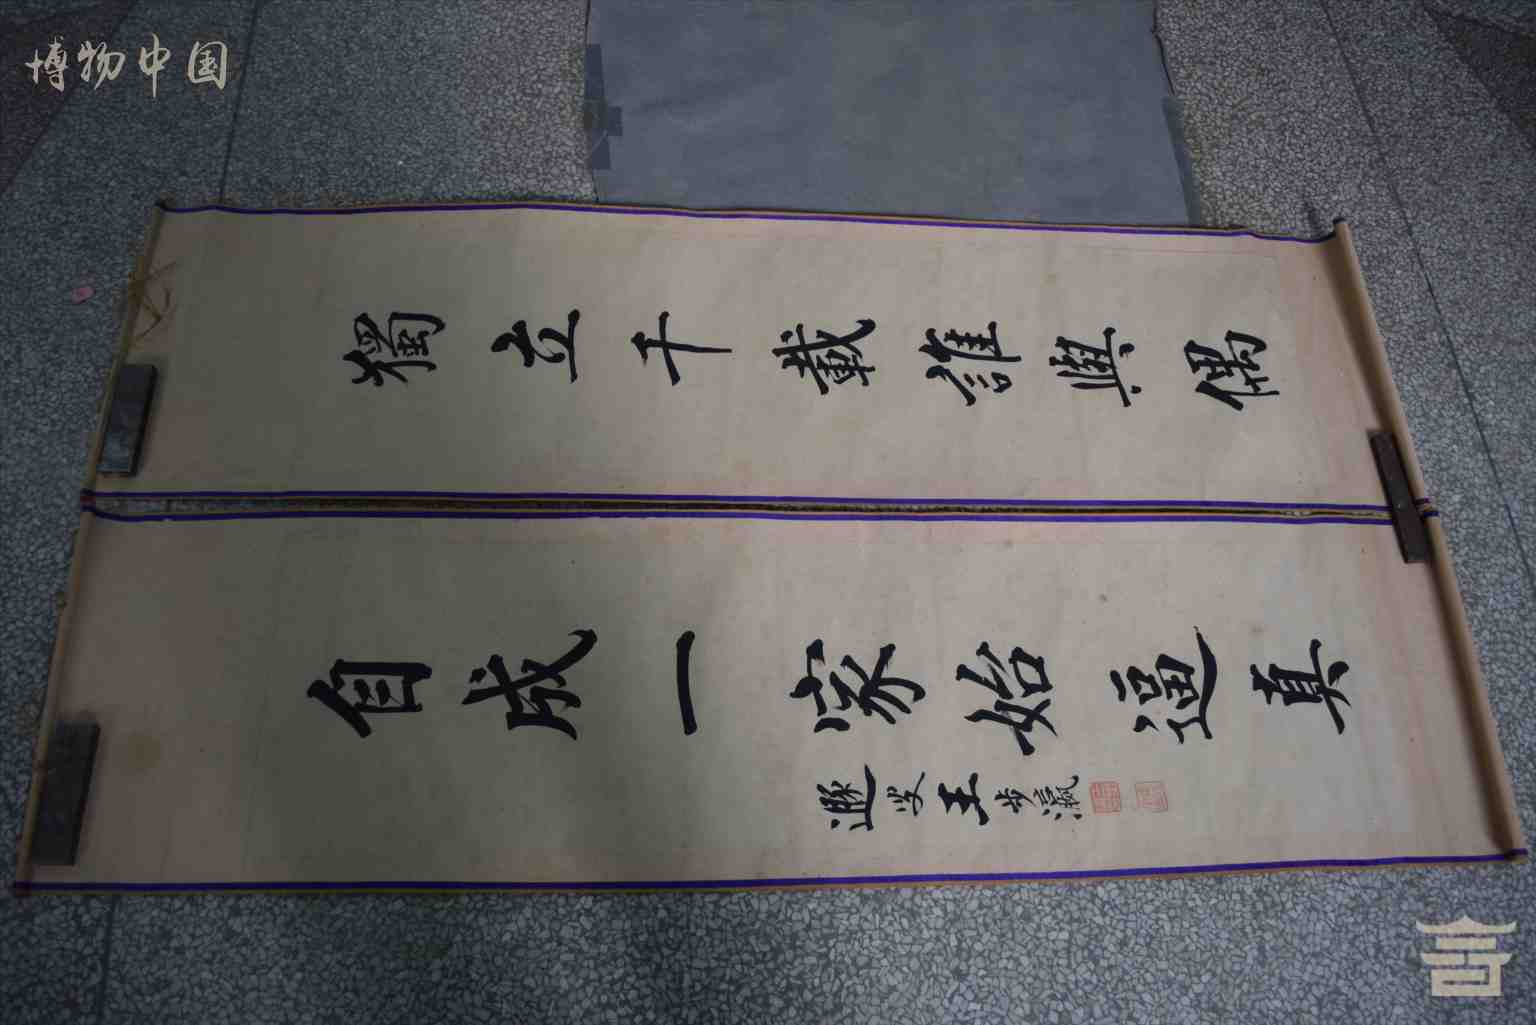 博物中国
獨立千載誰與偶
自成一家始逼真
遯叟王步瀛